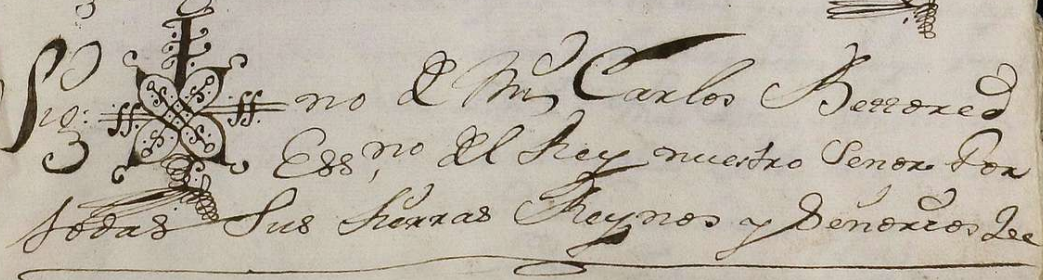 Sig no de Mi Carlos
Ess,no del Rey nuestro Señor Por
todas sus tierras Reynos y Señorios